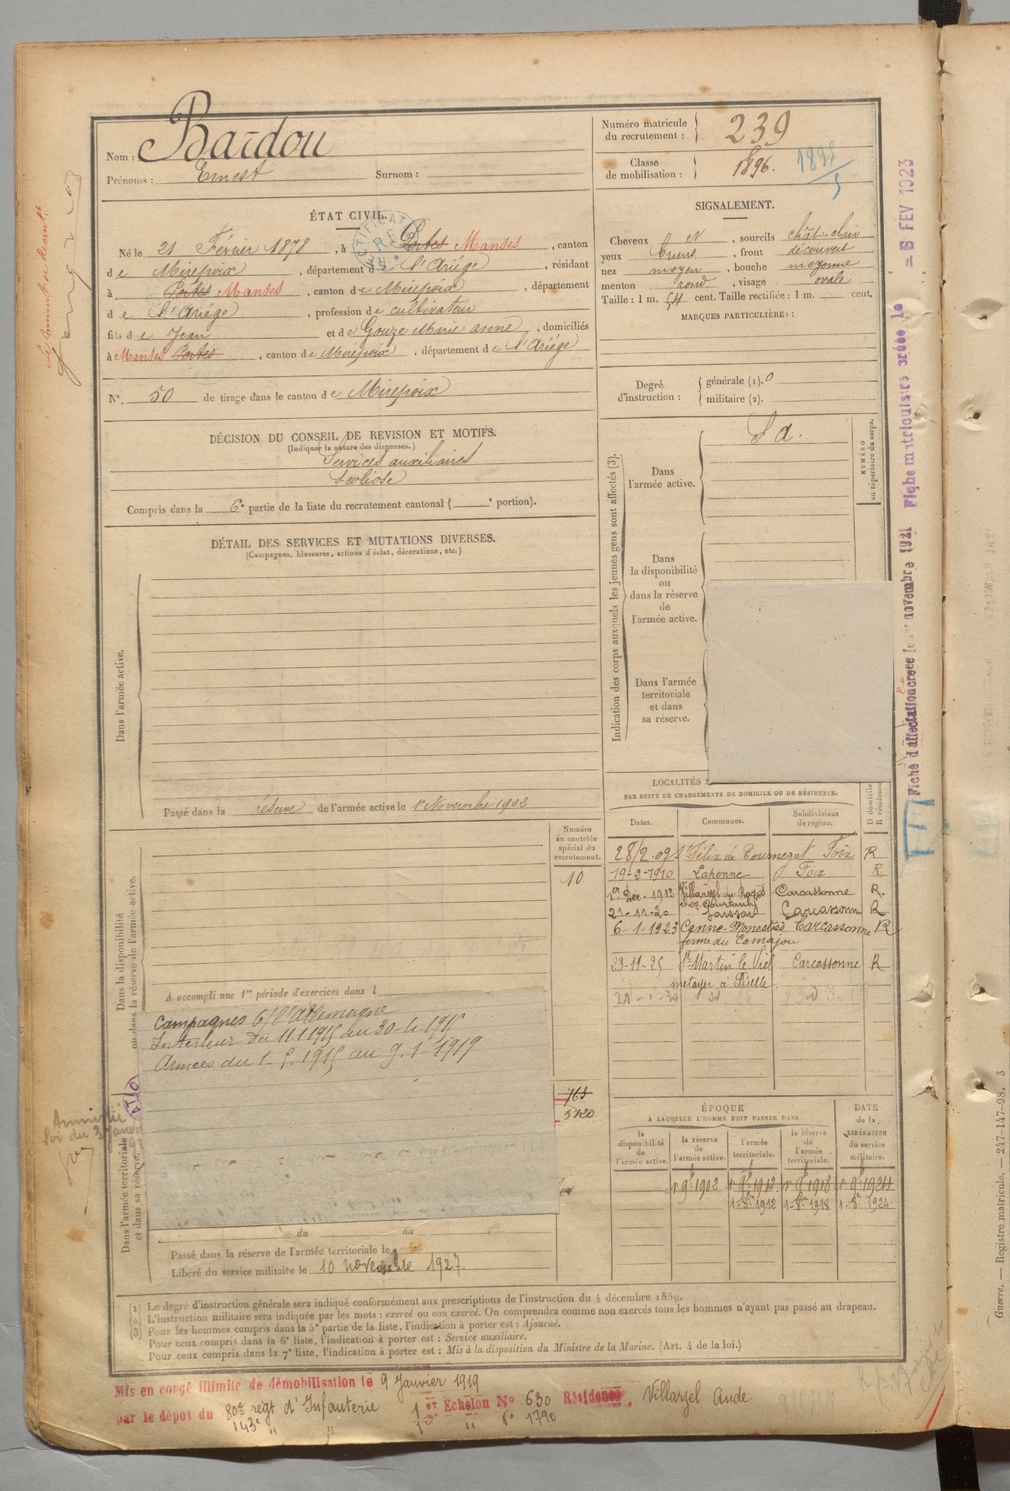 Nom : Bardou
Prénoms : Ernest Surnom :
Numéro matricule du recrutement : 239
Classe de mobilisation : 1896.
ÉTAT CIVIL.
Né le 21 Février 1878, à Portes Manses, canton
de Mirepoix, département de l'Ariége, résidant
à Portes Manses, canton de Mirepoix, département
de l'Ariége, profession de cultivateur
fils de Jean et de Gouze Marie anne, domiciliés
à Manses Portes, canton de Mirepoix, département de l'Ariége
N° 50 de tirage dans le canton de Mirepoix
DÉCISION DU CONSEIL DE REVISION ET MOTIFS.
(Indiquer la nature des dispenses.)
Services auxiliaires
Scoliose
Compris dans la 6e partie de la liste du recrutement cantonal ( e portion).
DÉTAIL DES SERVICES ET MUTATIONS DIVERSES.
(Campagnes, blessures, actions d'éclat, décorations, etc.)
Dans l'armée active.
Passé dans la réserve de l'armée active le 1er Novembre 1902
Numéro au contrôle spécial du recrutement.
10
Dans la disponibilité ou dans la réserve de l'armée active.
A accompli une 1re période d'exercices dans l
Campagnes C/ l'Allemagne
Intérieur Du 11 1 1915 au 30-4-1915
Armées du 1-5-1915 au 9-1-1919
5120
Amnistié
Dans l'armée territoriale et dans sa réserve.
du au
Passé dans la réserve de l'armée territoriale le
Libéré du service militaire le 10 novembre 1927.
SIGNALEMENT.
Cheveux N, sourcils chât-clair
yeux bruns, front découvert
nez moyen, bouche moyenne
menton rond, visage ovale
Taille : 1 m. 54 cent. Taille rectifiée : 1 m. cent.
MARQUES PARTICULIÈRES :
Degré d'instruction : générale (1). 0
militaire (2).
Indication des corps auxquels les jeunes gens sont affectés (3).
NUMÉRO au répertoire du corps.
Dans l'armée active.
S a.
Dans la disponibilité ou dans la réserve de l'armée active.
Dans l'armée territoriale et dans sa réserve.
LOCALITÉS S
PAR SUITE DE CHANGEMENTS DE DOMICILE OU DE RÉSIDENCE.
Dates. Communes. Subdivisions de région. D domicile R résidence
28/2-09 St Félix de Tournegat Foix R
19-2-1910 Lapenne Foix R
1er Déc. 1912 Villarzel du Razès Carcassonne R.
21-11-20 Carcassonne R
6-1-1923 Cenne-Monestiés Carcassonne R
ferme du Camajou
23-11-25 St Martin le Viel Carcassonne R
métayer à
ÉPOQUE
À LAQUELLE L'HOMME DOIT PASSER DANS
DATE de la LIBÉRATION du service militaire.
la disponibilité de l'armée active. la réserve de l'armée active. l'armée territoriale. la réserve de l'armée territoriale.
1r 9bre 1902 1r 9bre 1912 1r 9bre 1918 1r 9bre 1924
1-8bre 1912 1-8bre 1918 1-8bre 1924
(1) Le degré d'instruction générale sera indiqué conformément aux prescriptions de l'instruction du 4 décembre 1889.
(2) L'instruction militaire sera indiquée par les mots : exercé ou non exercé. On comprendra comme non exercés tous les hommes n'ayant pas passé au drapeau.
(3) Pour les hommes compris dans la 5e partie de la liste, l'indication à porter est : Ajourné.
Pour ceux compris dans la 6e liste, l'indication à porter est : Service auxiliaire.
Pour ceux compris dans la 7e liste, l'indication à porter est : Mis à la disposition du Ministre de la Marine. (Art. 4 de la loi.)
Mis en congé illimité de démobilisation le 9 Janvier 1919
par le dépôt du 80e regt d'Infanterie 1er Echelon N° 630 Résidence Villarzel Aude
143e " " 1790
Fiche d'affectation créée le novembre 1921 Fiche matriculaire créée le = 6 FEV 1923
Guerre. — Registre matricule. — 247-147-98. 3